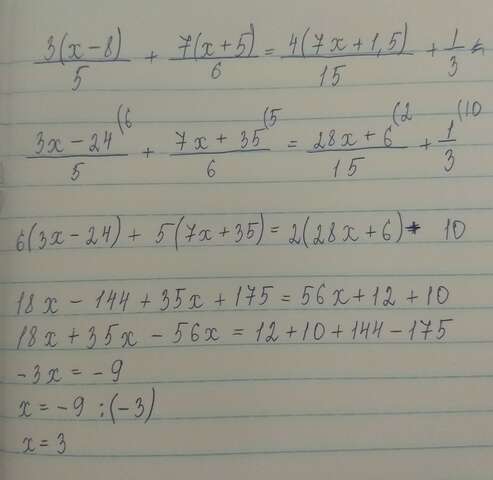 3(x-8)/5 + 7(x+5)/6 = 4(7x+1,5)/15 + 1/3
3x-24/5 (6 + 7x+35/6 (5 = 28x+6/15 (2 + 1/3 (10
6(3x-24) + 5(7x+35) = 2(28x+6) + 10
18x - 144 + 35x + 175 = 56x + 12 + 10
18x + 35x - 56x = 12 + 10 + 144 - 175
-3x = -9
x = -9 : (-3)
x = 3